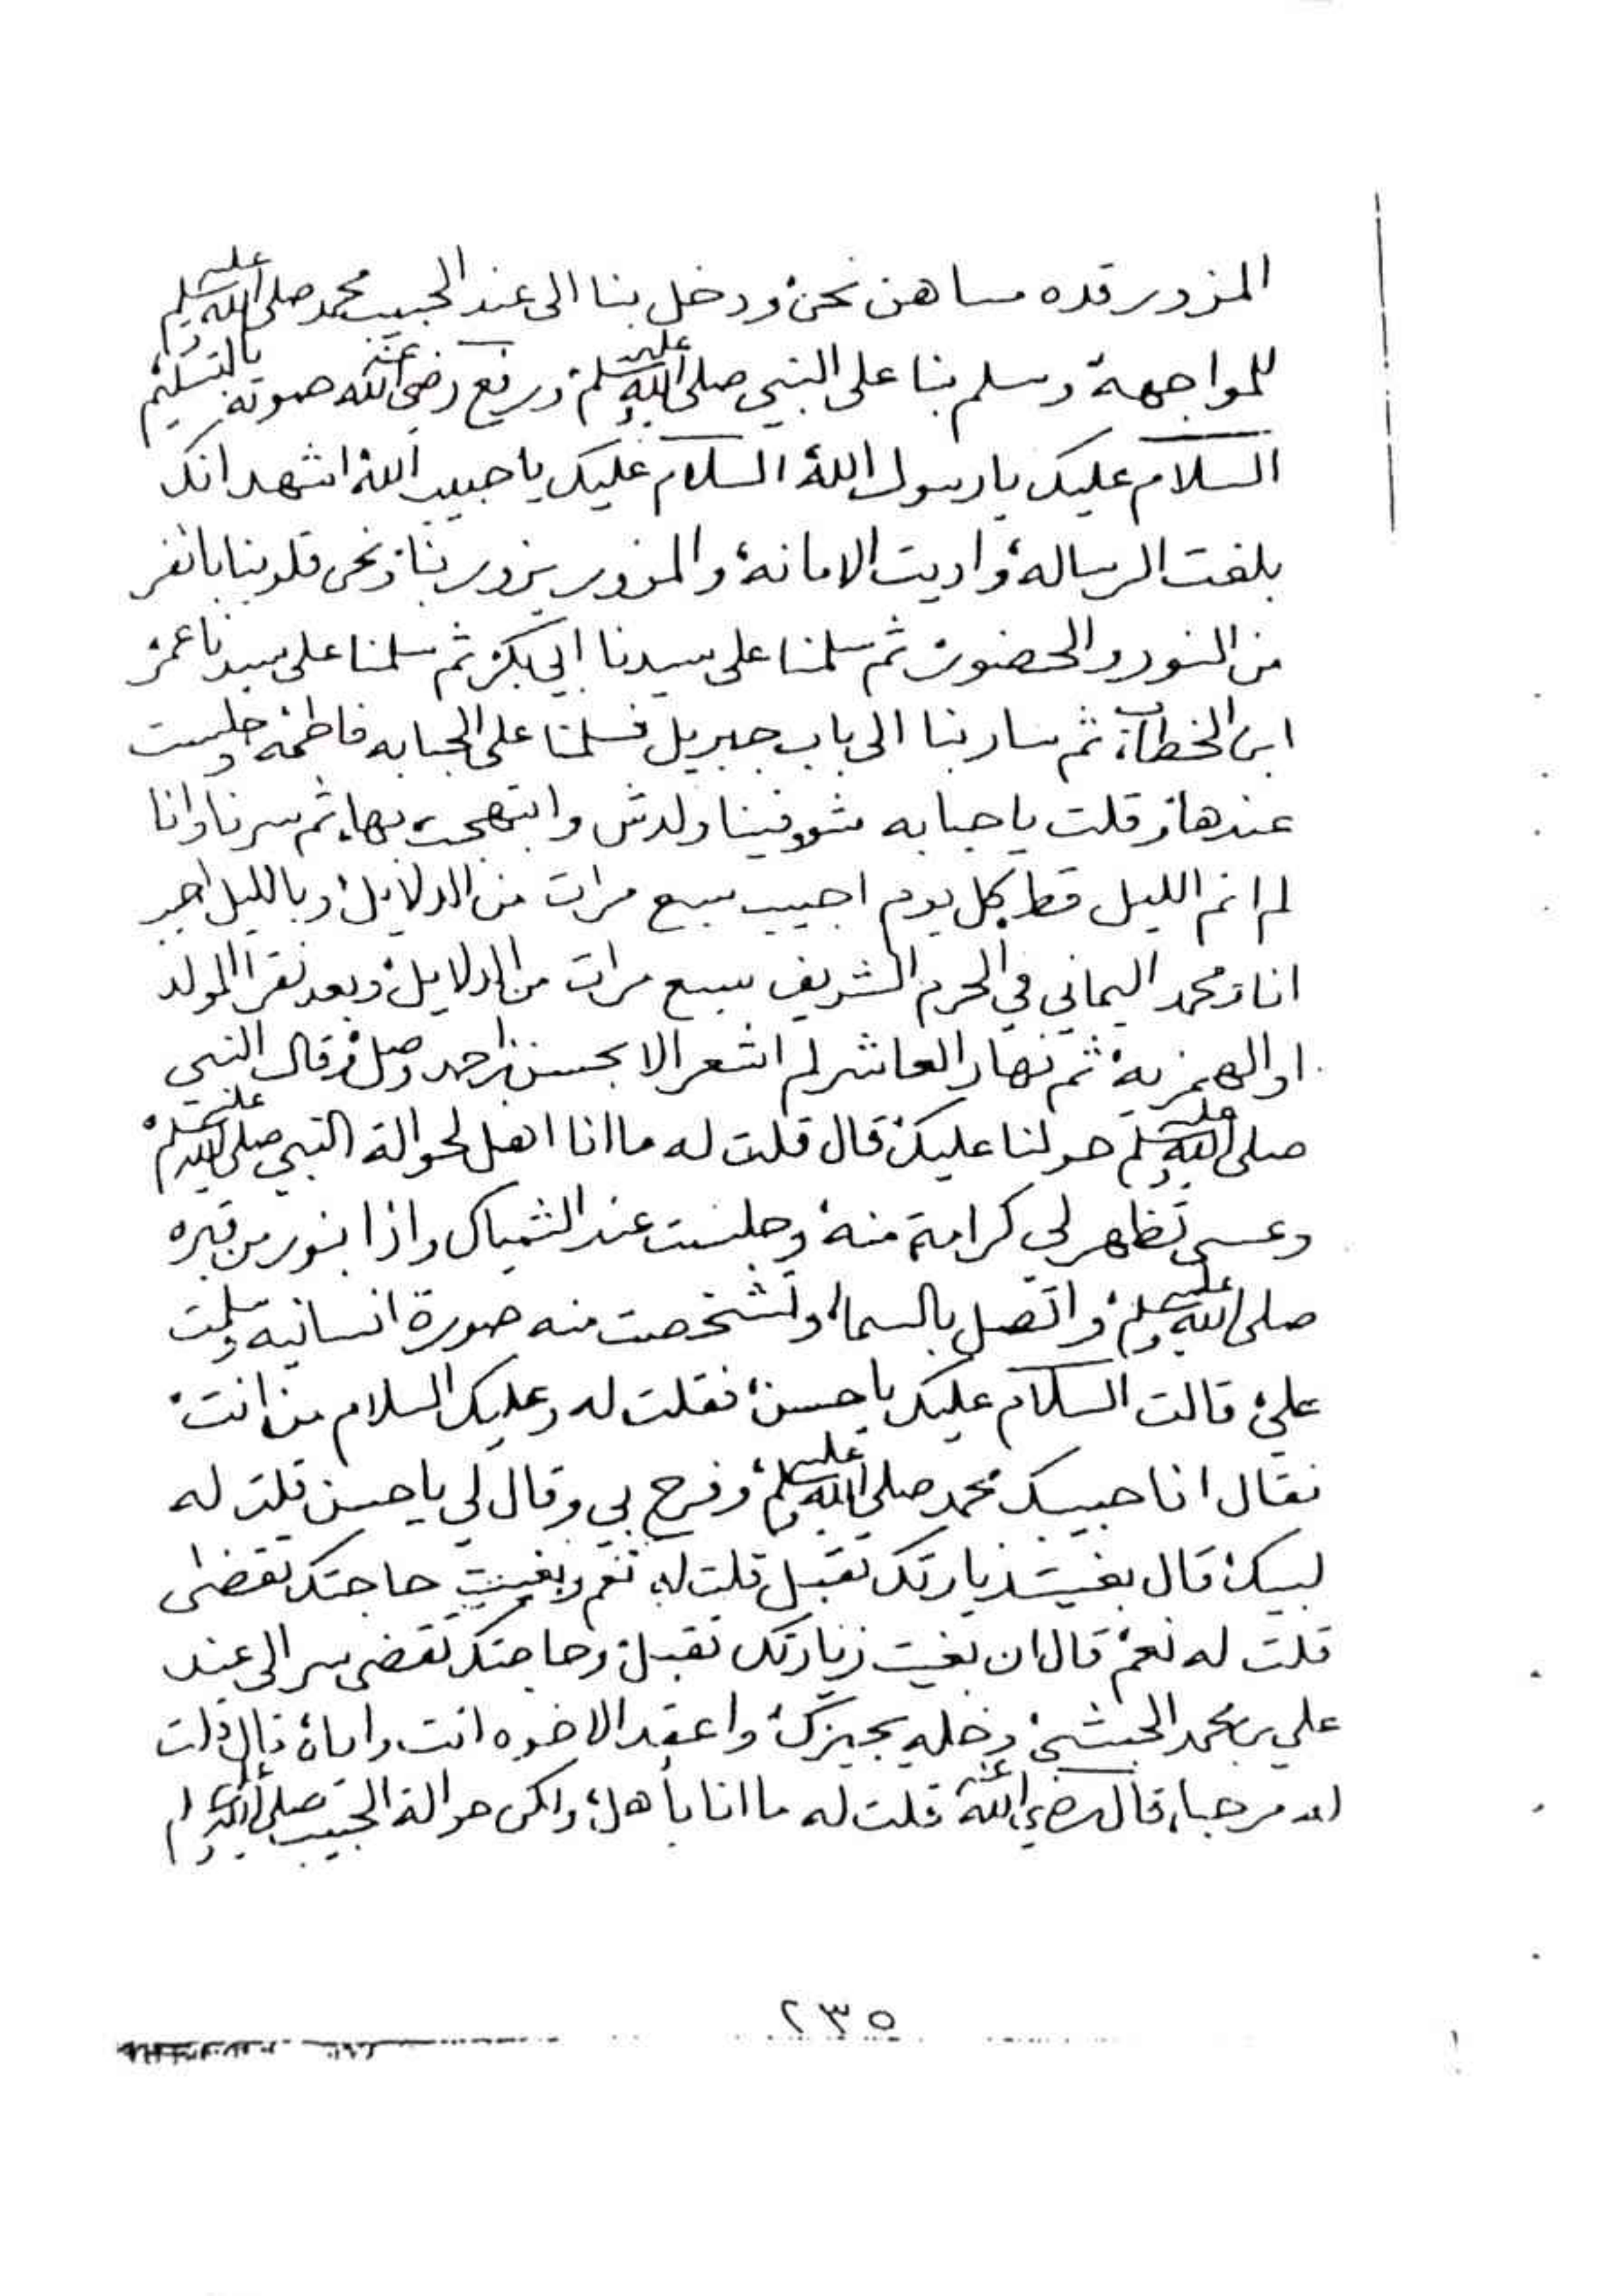 المزور قده مساهن نحن ودخل بنا الى عند الحبيب محمد صلى الله عليه وسلم
للمواجهة وسلم بنا على النبي صلى الله عليه وسلم ورفع رضي الله عنه صوته بالتسليم
السلام عليك يا رسول الله السلام عليك يا حبيب الله اشهد انك
بلغت الرساله واديت الامانة والمزور يزور بنا ونحن قلوبنا باتفر
من النور والحضور ثم سلمنا على سيدنا ابي بكر ثم سلمنا على سيدنا عمر
ابن الخطاب ثم سار بنا الى باب جبريل فسلمنا على الحبابه فاطمه وجلست
عندها وقلت يا حبابه شوفينا ولدش وابتهجت بها، ثم سرنا وانا
لم انم الليل قط كل يوم اجيب سبع مرات من الدلايل وبالليل اجيب
انا ومحمد اليماني في الحرم الشريف سبع مرات من الدلايل وبعد نقرا المولد
او الهمزية ثم نهار العاشر لم اشعر الا بحسن بن احمد وصل وقال النبي
صلى الله عليه وسلم حولنا عليك قال قلت له ما انا اهل لحوالة النبي صلى الله عليه وسلم
وعسى تظهر لي كرامة منه وجلست عند الشباك واذا بنور من قبره
صلى الله عليه وسلم واتصل بالسماء وتشخصت منه صورة انسانيه وسلمت
علي قالت السلام عليك يا حسن فقلت له وعليك السلام من انت
فقال انا حبيبك محمد صلى الله عليه وسلم وفرح بي وقال لي يا حسن قلت له
لبيك قال بغيت زيارتك تقبل قلت له نعم وبغيت حاجتك تقضى
قلت له نعم قال ان بغيت زيارتك تقبل وحاجتك تقضى سر الى عند
علي بن محمد الحبشي وخليه يجيزك واعقد الاخوه انت واياه قال قلت
له مرحبا، قال رضي الله عنه قلت له ما انا بأهل ولكن حوالة الحبيب صلى الله
٢٣٥